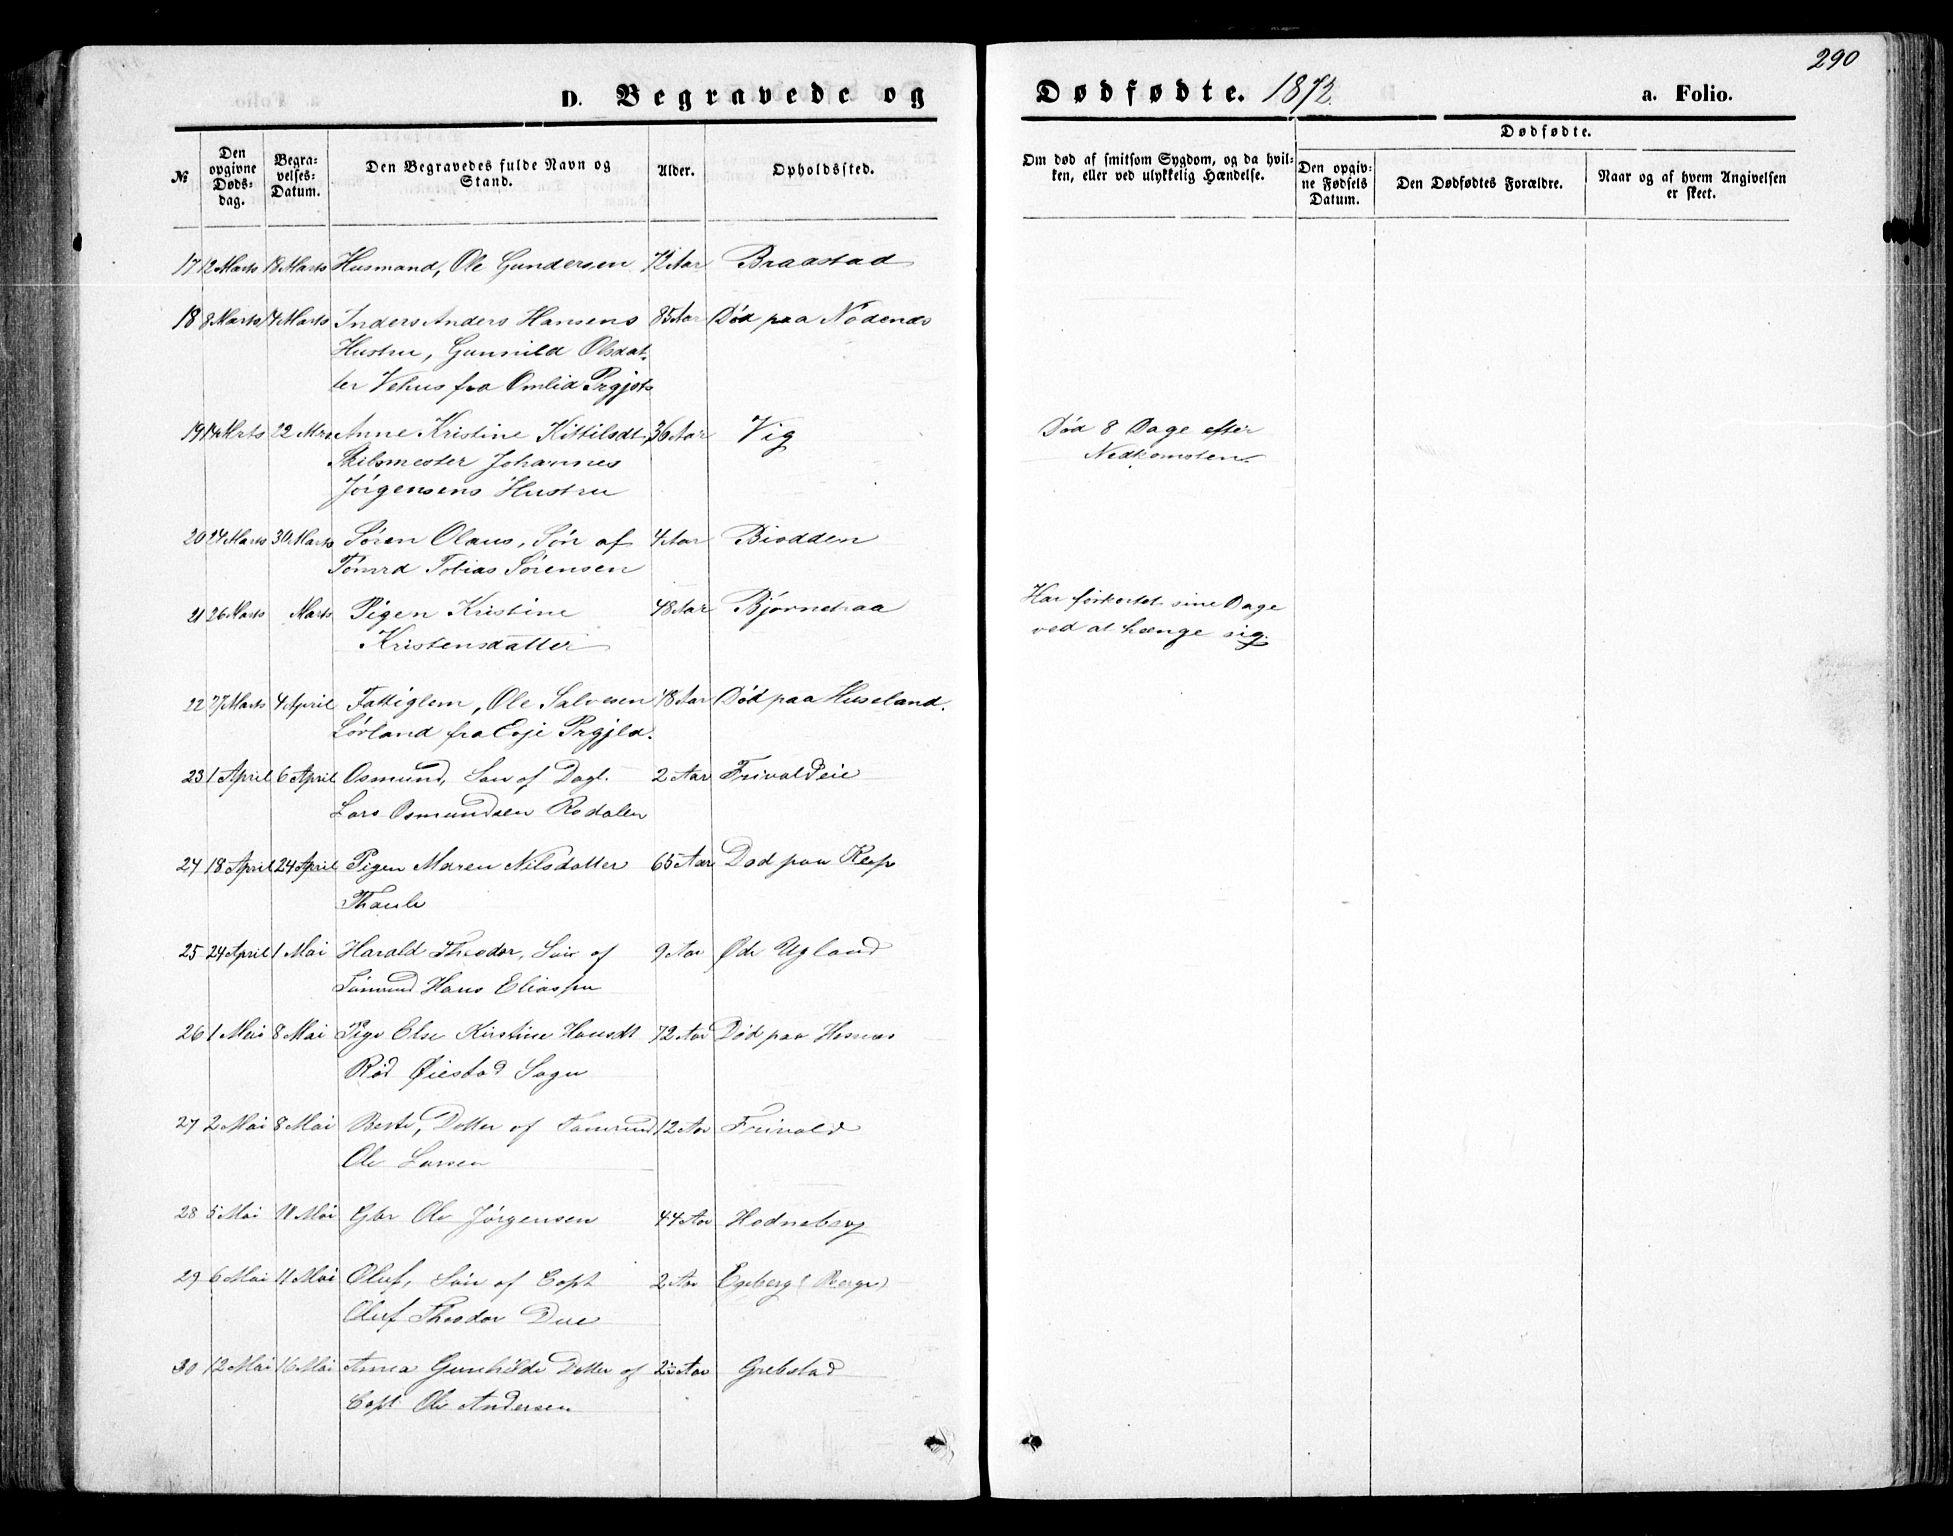 290
D. Begravede og Dødfødte. 1872. a. Folio.
№
Den opgivne Døds-dag.
Begra-velses-Datum.
Den Begravedes fulde Navn og Stand.
Alder.
Opholdssted.
Om død af smitsom Sygdom, og da hvil-
ken, eller ved ulykkelig Hændelse.
Dødfødte.
Den opgiv-ne Fødsels Datum.
Den Dødfødtes Forældre.
Naar og af hvem Angivelsen er skeet.
17 12 Marts 18 Marts Husmand, Ole Gundersen 72 Aar Braastad
18 8 Marts 14 Marts Inders Anders Hansens 85 Aar Død paa Nødenes
Hustru, Gunnild Olsdat-
ter Vehus fra Omlid Prgjets
19 14 Mrts 22 Mrs Anne Kristine Kittilsdt, 36 Aar Vig Død 8 Dage efter
Skibsmester Johannes Nedkomsten.
Jørgensens Hustru
20 24 Marts 30 Marts Søren Olaus, Søn af 4 Aar Biodden
Tømrd Tobias Sørensen
21 26 Marts Marts Pigen Kristine 48 Aar Bjørnetraa Har forkortet sine Dage
Kristensdatter ved at hænge sig.
22 27 Marts 4 April Fattiglem, Ole Salvesen 48 Aar Død paa Huseland.
Lørland fra Evje Prgjld.
23 1 April 6 April Osmund, Søn af Dagl. 2 Aar Frivold eie
Lars Osmundsen Rødalen
24 18 April 24 April Pigen Maren Nilsdatter 65 Aar Død paa Kep
25 24 April 1 Mai Harald Theodor, Søn af 9 Aar Øde Ugland
Tømrmd Hans Eliassen
26 1 Mai 8 Mai Pige Else Kirstine Hansdt 72 Aar Død paa Hesnes
Rød Øiestad Sogn
27 2 Mai 8 Mai Berte, Datter af Tømrmd 12 Aar Frivold
Ole Larsen
28 5 Mai 11 Mai Gbr Ole Jørgensen 44 Aar Hodneberg
29 6 Mai 11 Mai Oluf, Søn af Capt 2 Aar Egeberg (Berge)
Oluf Theodor Due
30 12 Mai 16 Mai Anna Gunhilde Datter af 2 Aar Grebstad
Capt Ole Andersen